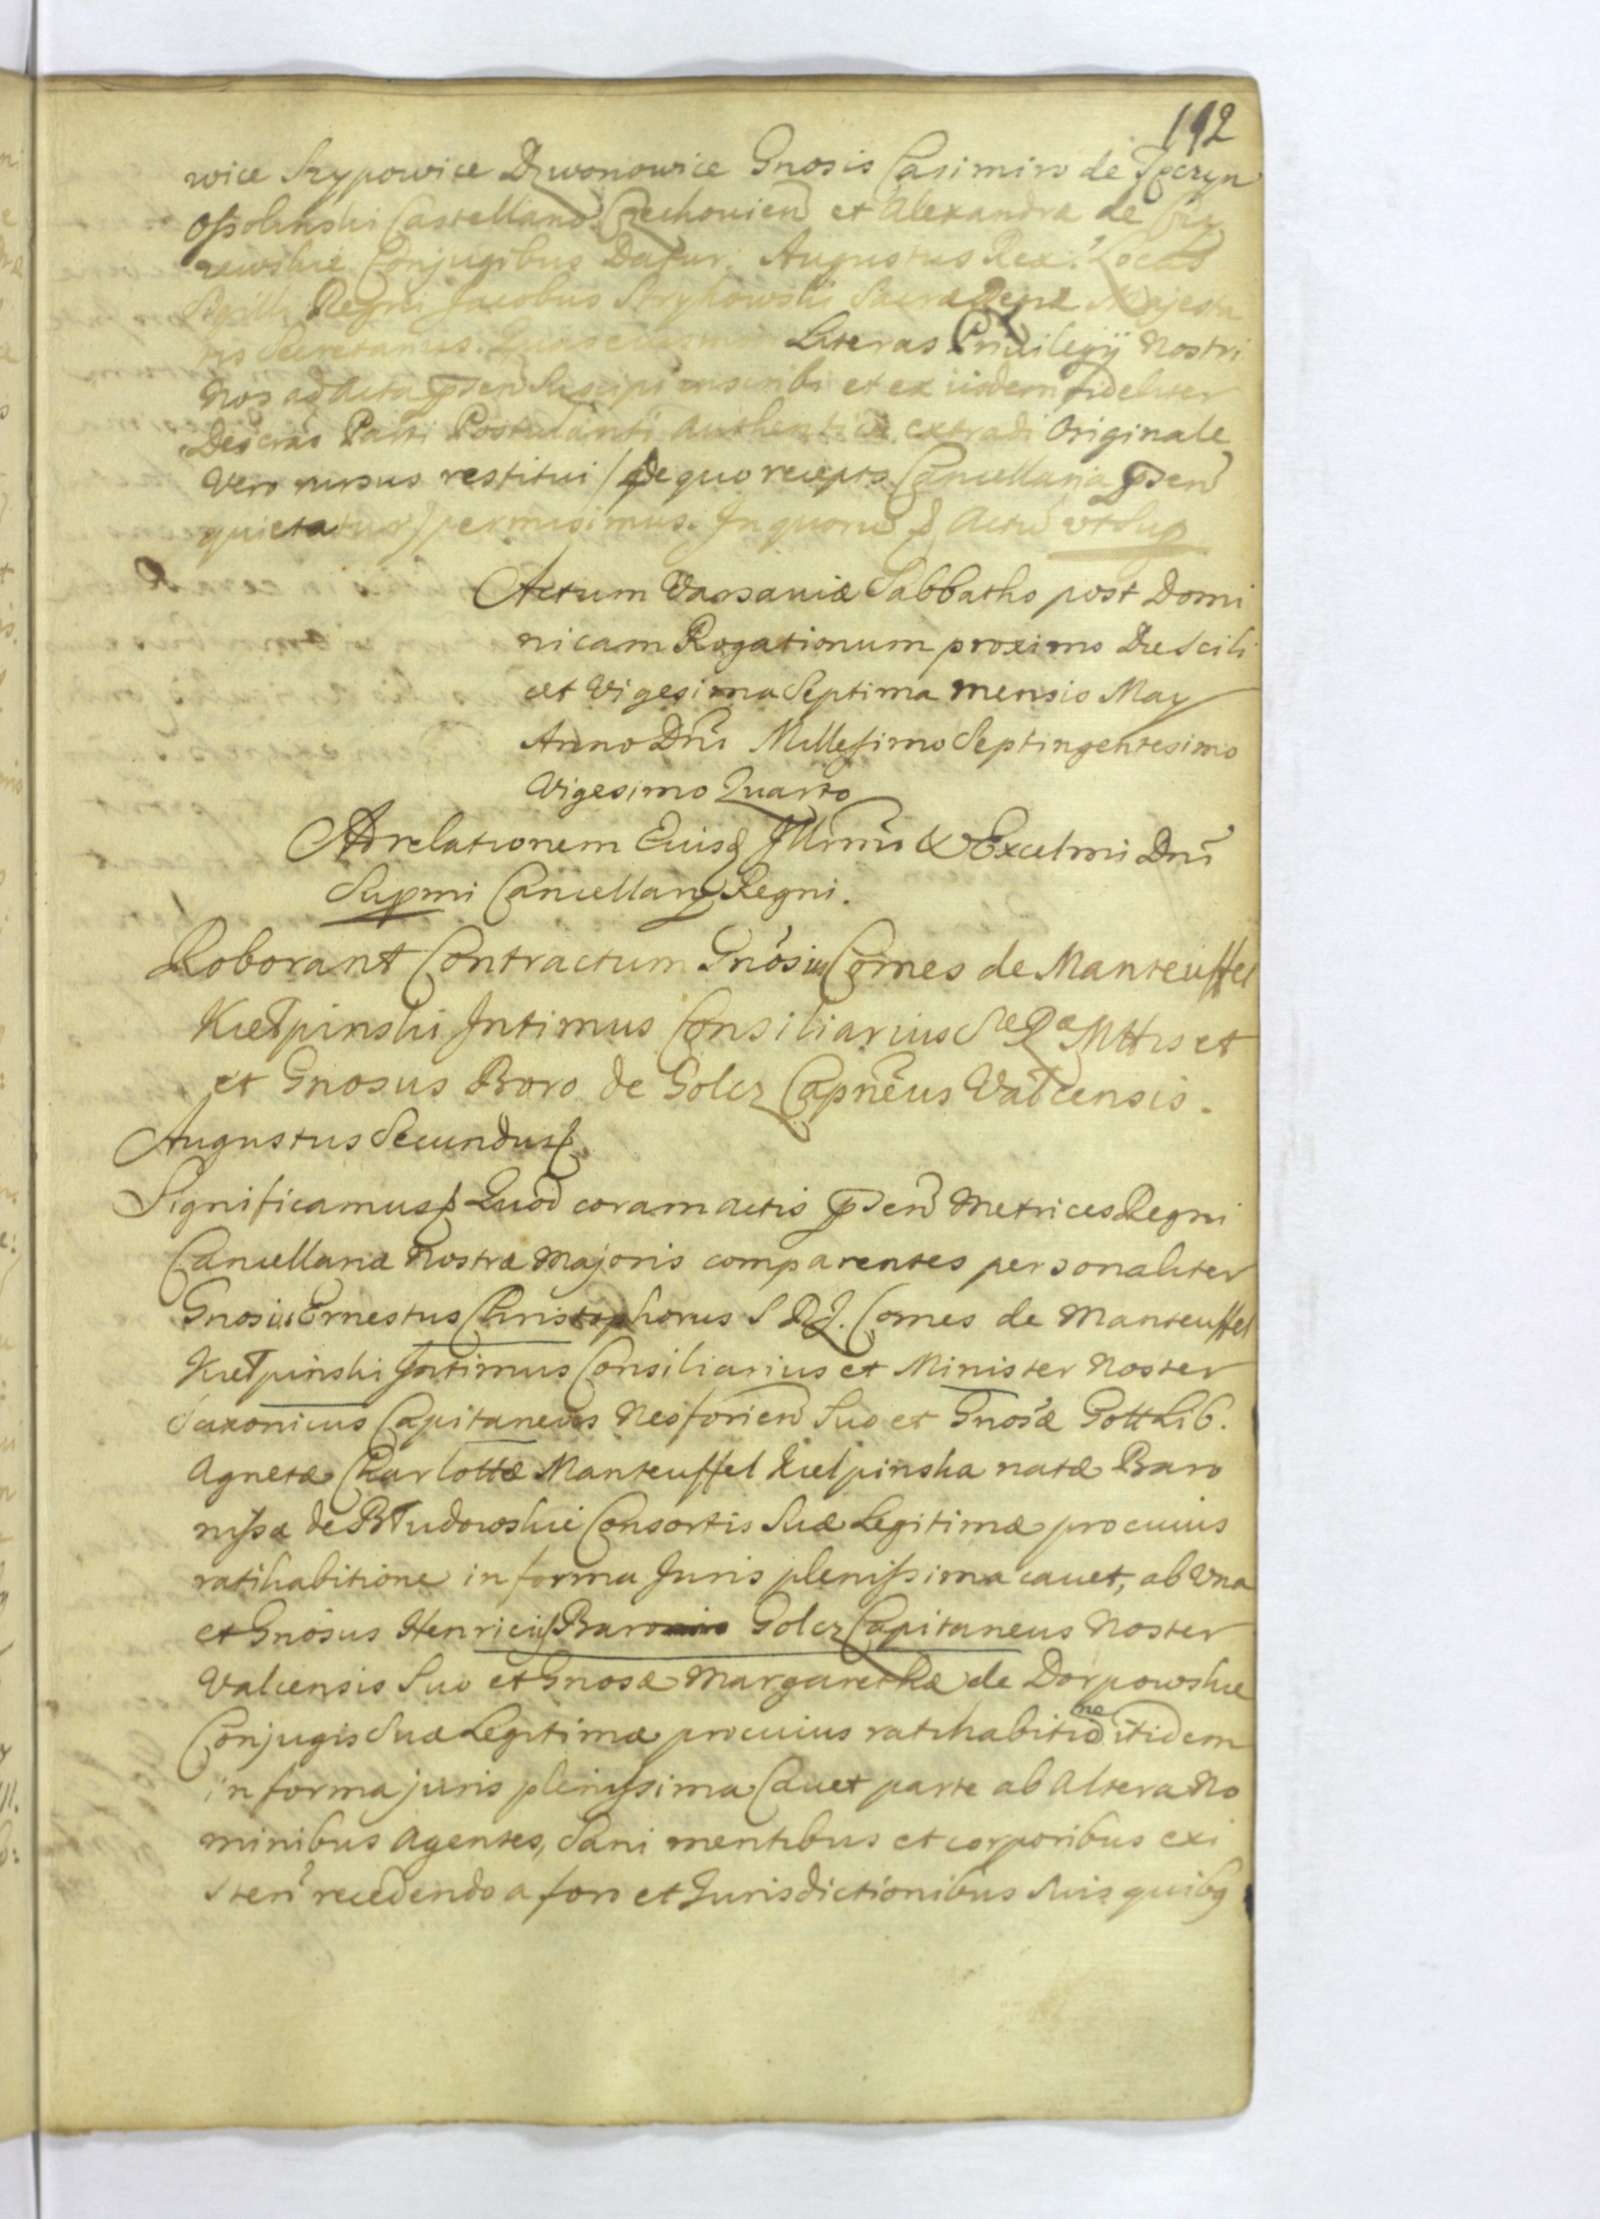 192
wice Szypowice Dzwonowice Gnosis Casimiro de Tęczyn
Ossolinski Castellano Czechovien et Alexandra de
rewskie Conjugibus Datur. Augustus Rex. Locus
Sigilli Regni Jacobus Strykowski Sacræ Regiæ Majesta
tis Secretarius. Literas Privilegÿ Nostri
Nos ad Acta pnsen Suscipi inscribi et ex iisdem fideliter
Descras Parti Postulanti authentice extradi Originale
Vero rursus restitui / de quo recepto Cancellaria pnsen
quietatur / permisimus. In quoru Actu vt Sup
Actum Varsaviæ Sabbatho post Domi
nicam Rogationum proximo Die Scili
cet Vigesima Septima Mensis May
Anno Dni Millesimo Septingentesimo
Vigesimo Quarto
Ad relationem Eiusd Illrmi & Excelmi Dni
Supmi Cancellarÿ Regni.
Roborant Contractum Gnosius Comes de Manteuffel
Kiełpinski Intimus Consiliarius Sæ Ræ Mttis et
et Gnosus Baro de Golcz Capneus Valcensis.
Augustus Secundus
Significamus Quod coram actis pnsen Metrices Regni
Cancellariæ Nostræ Majoris comparentes personaliter
Gnosius Ernestus Christophorus S R J. Comes de Manteuffel
Kiełpinski Intimus Consiliarius et Minister Noster
Saxonicus Capitaneus Neoforien Suo et Gnosæ Gottlib.
Agnetæ Charlottæ Manteuffel Kielpinska natæ Baro
nissæ de Błudowskie Consortis Suæ Legitimæ pro cuius
ratihabitione in forma Juris plenissima cauet, ab Vna
et Gnosus Henricus Baro Golcz Capitaneus Noster
Valcensis Suo et Gnosæ Margarethæ de Dorpowskie
Conjugis Suæ Legitimæ pro cuius ratihabitione itidem
in forma juris plenissima Cauet parte ab Altera No
minibus Agentes, Sani mentibus et corporibus exi
sten recedendo a foro et Jurisdictionibus Suis quibq